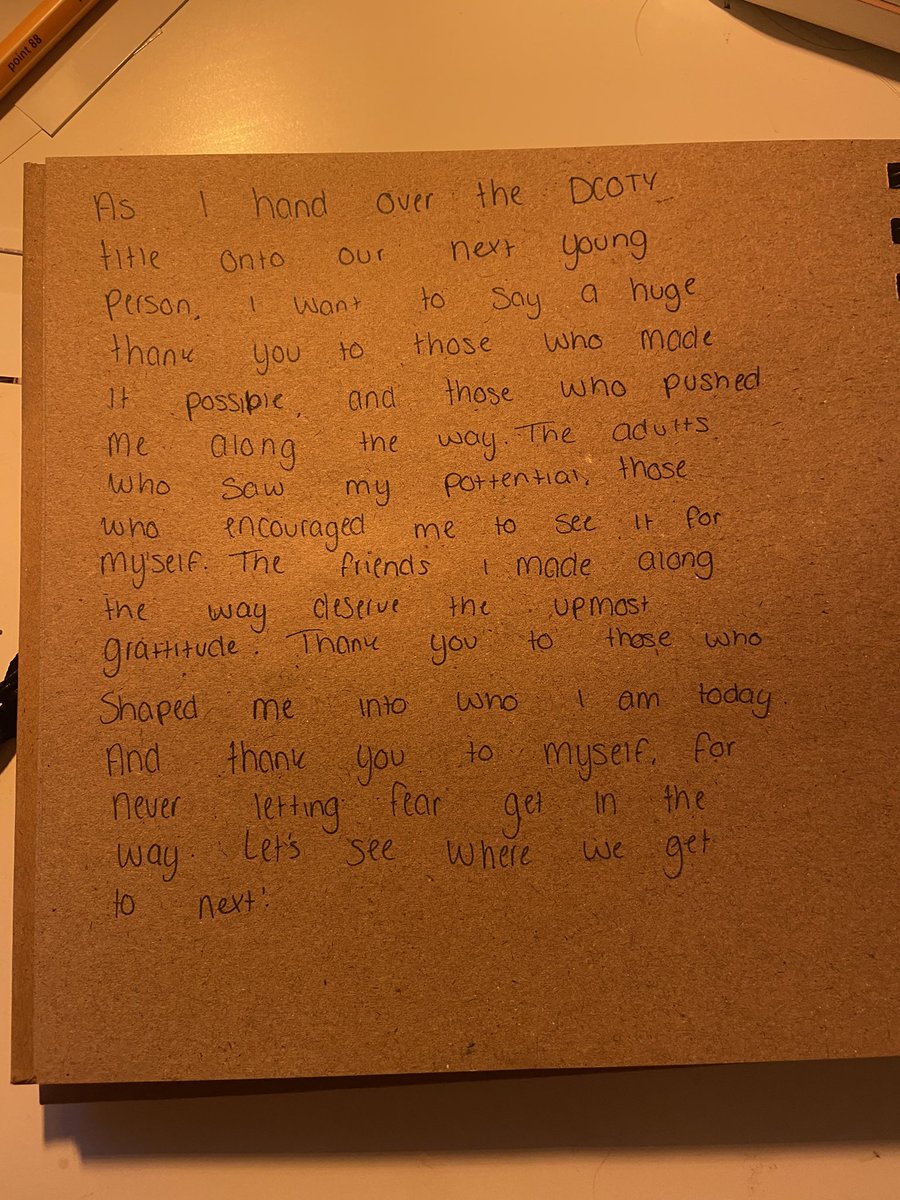 point 88
As I hand over the DCOTY
title onto our next young
person, I want to say a huge
thank you to those who made
it possible, and those who pushed
me along the way. The adults
who saw my pottential, those
who encouraged me to see it for
myself. The friends I made along
the way deserve the upmost
grattitude. Thank you to those who
Shaped me into who I am today.
And thank you to myself, for
never letting fear get in the
way. Let's see where we get
to next!